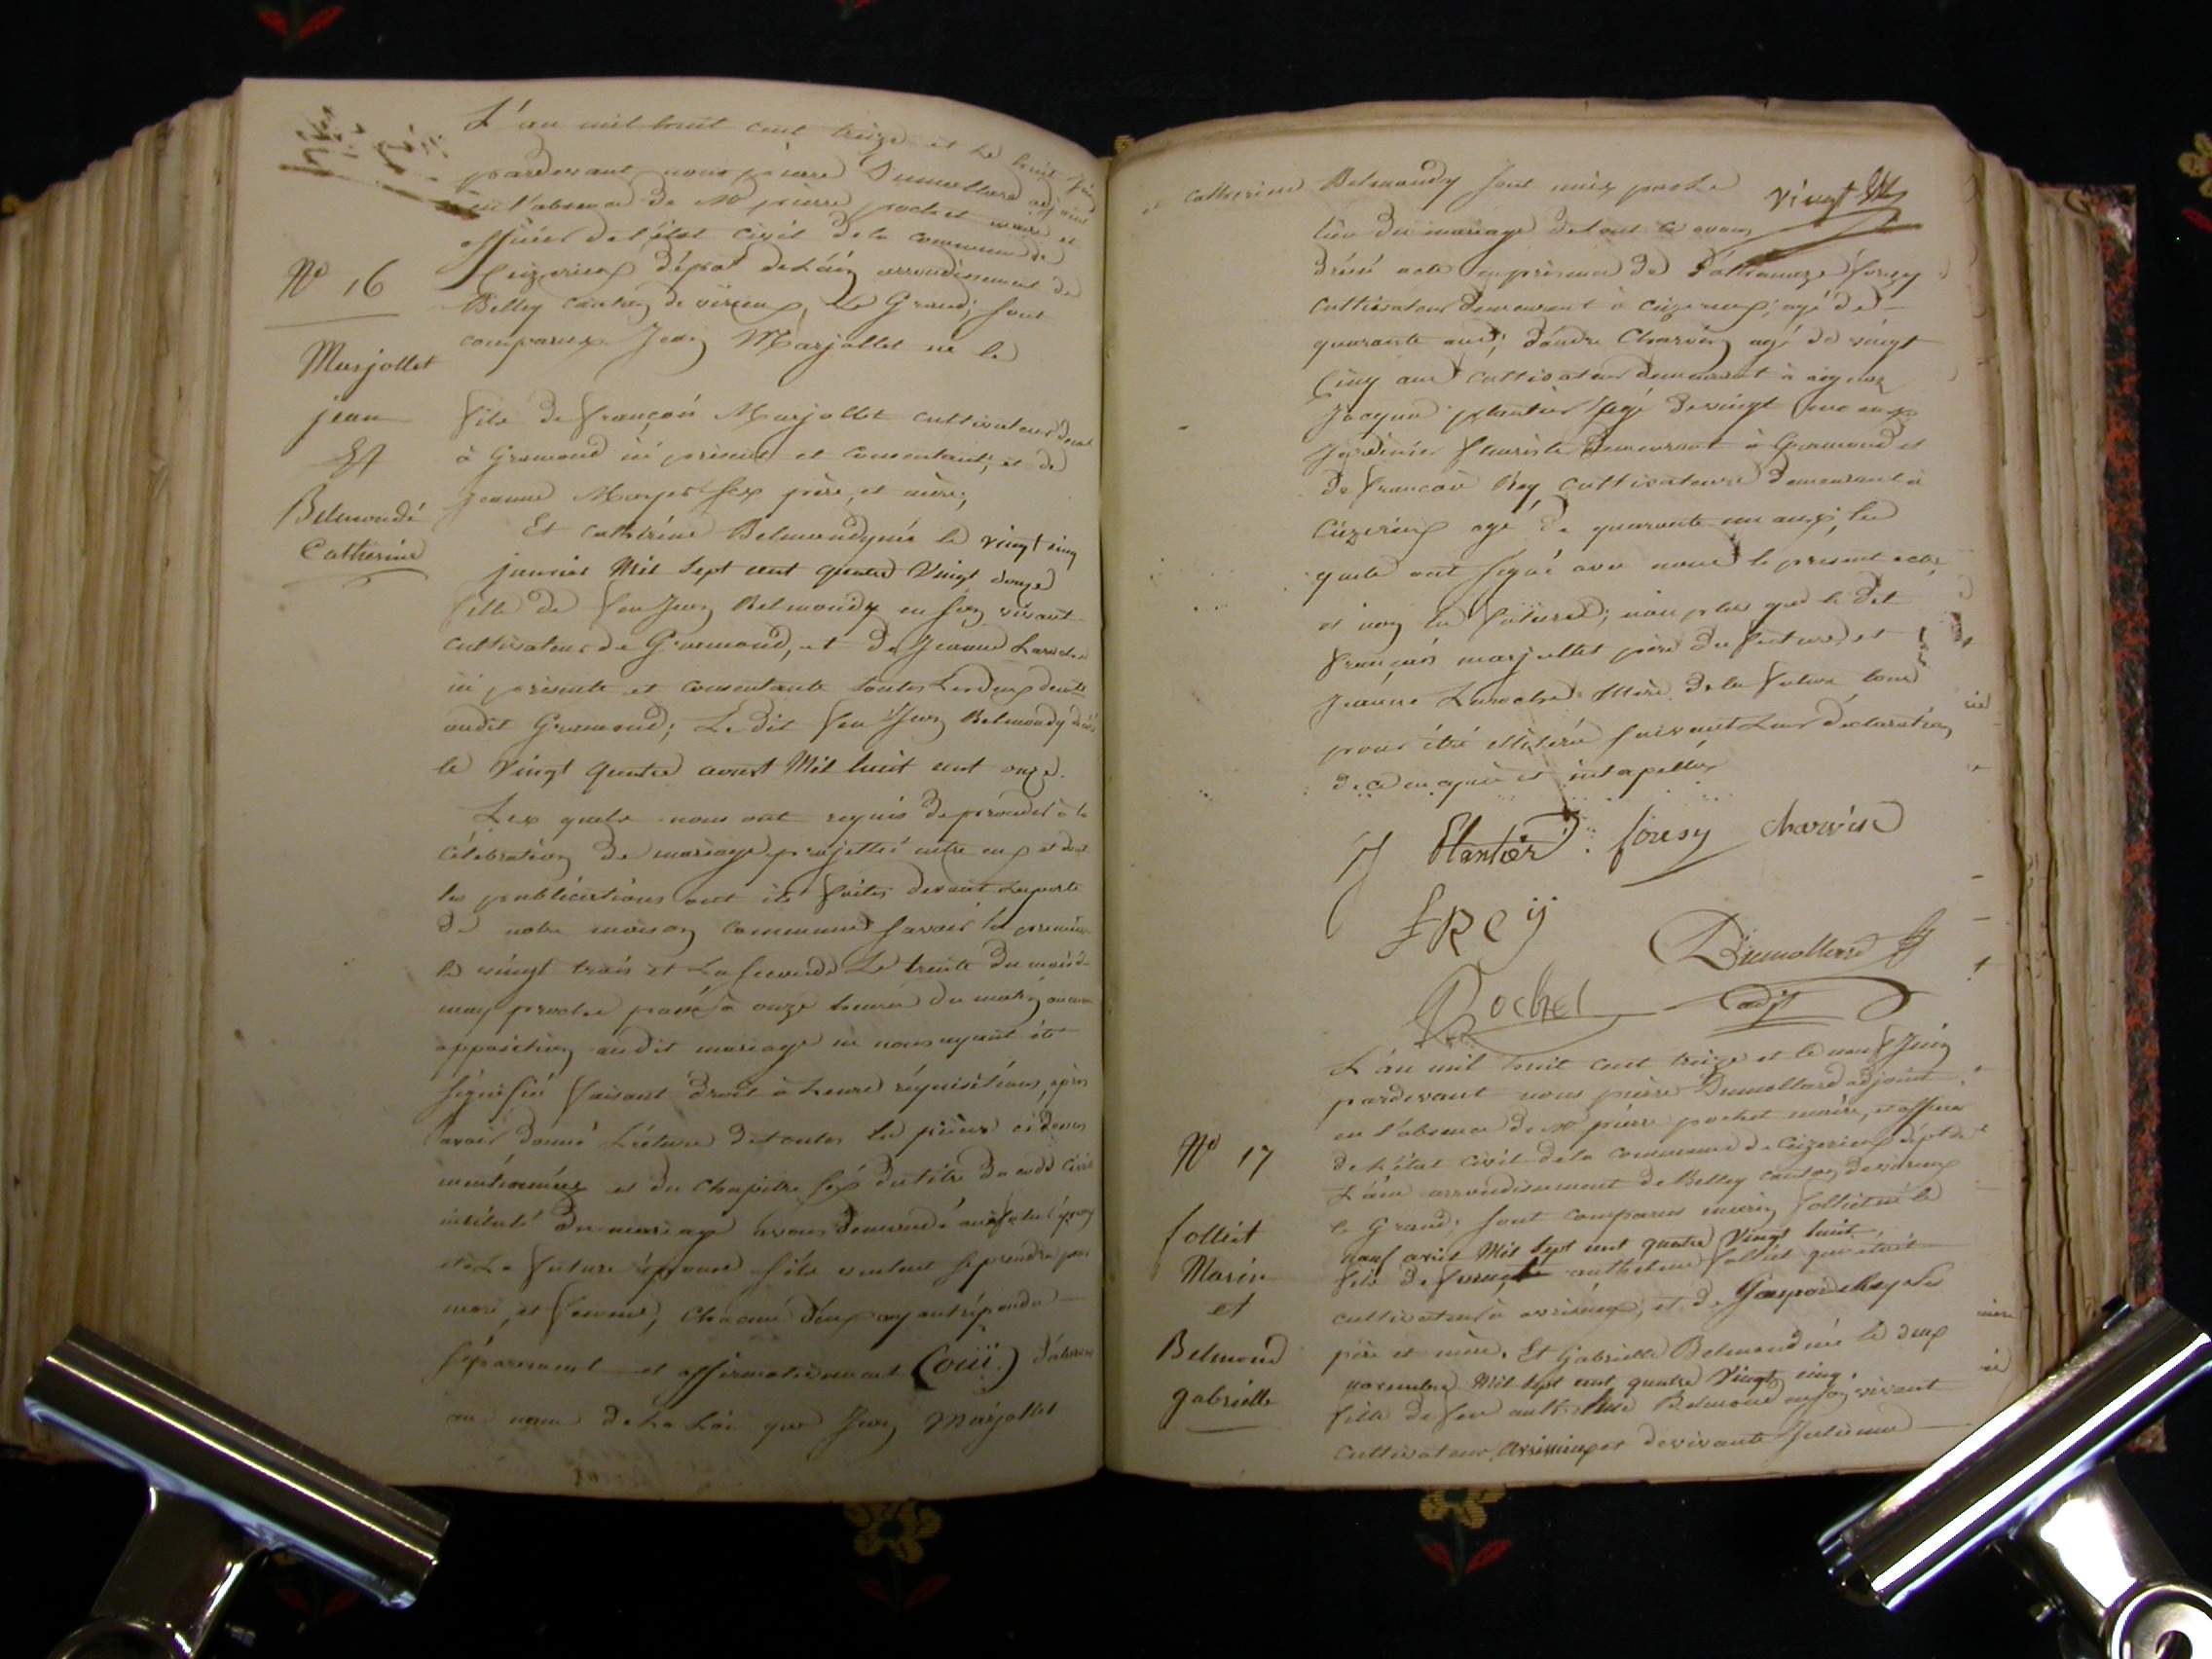 L'an mil huit cent treize et le huit juin
pardevant nous pierre Dumollard adjoint
en l'absence de Mr pierre pochet maire et
officier de l'état civil de la commune de
Ceizerieux dépt de L'ain arrondissement de
Belley canton de virieux le Grand; sont
comparus Jean Marjollet né le
fils de françois Marjollet cultivateur demt
à Gramond ici présent et consentant; et de
jeanne père et mère;
Et cathérine Belmondy née le vingt cinq
janvier Mil Sept cent quatre Vingt douze
fille de feu Jean Belmondy en son vivant
cultivateur de Gramond, et de Jeanne Laroche
ici présente et consentante toutes Les deux demte
audit Gramond; Le dit feu Jean Belmondy décédé
le Vingt quatre aoust Mil huit cent onze.
Lex quels nous ont requis de proceder à la
célébration de mariage projetté entre eux et dont
les publications ont été faites devant la porte
de notre maison commune savoir la premiere
le vingt trois et La seconde Le trente du mois de
may proche passé à onze heures du matin aucune
opposition audit mariage ne nous ayant été
signifié faisant droit à Leurs réquisitions, après
avoir donné Lecture de toutes les pièces ci dessus
mentionnées et du chapitre six du titre du code civil
intitulé du mariage avons demandé au futur époux
et à La future épouse s'ils veulent se prendre pour
mari, et femme, chacun d'eux ayant répondu
séparement et affirmativement (oüi) déclarons
au nom de La Loi que Jean Marjollet
No 16
Marjollet
jean
Et
Belmondi
Catherine
et catherine Belmondy sont unis par Le
lien du mariage de tout ce avons
dréssé acte en présence de fouzy
cultivateur demeurant à Ceizerieux; agé de
quarante ans; d'andré Charvin agé de vingt
Cinq ans cultivateur demeurant à
Jacques plantier agé de vingt
jardinier fleuriste demeurant à Gramond et
de françois Rey cultivateurs demeurant à
Ceizerieux agé de quarante un ans; les
quels ont signé avec nous le present acte,
et non les futures; non plus que le dit
françois marjollet père du future et
Jeanne Laroche Mère de la future tous
pour être illitéré suivant Leur déclaration
de ce enquis et intapellés
J Plantier fousy charvin
f Rey
Dumollard
Pochet adjt
L'an mil huit cent treize et le neuf Juin
pardevant nous pierre Dumollard adjoint
en l'absence de Mr pierre pochet maire, et officier
de L'état civil de la commune de Ceizerieux dépt de
L'ain arrondissement de Belley canton de virieux
le Grand; sont comparus marin folliet né le
neuf avril Mil Sept cent quatre Vingt huit.
fils de anthelme folliet qui était
cultivateur à et de
père et mère. Et Gabrielle Belmond née le deux
novembre Mil Sept cent quatre Vingt cinq.
fille de feu anthelme Belmond en son vivant
cultivateur et de vivante Julienne
No 17
folliet
Marin
et
Belmond
gabrielle